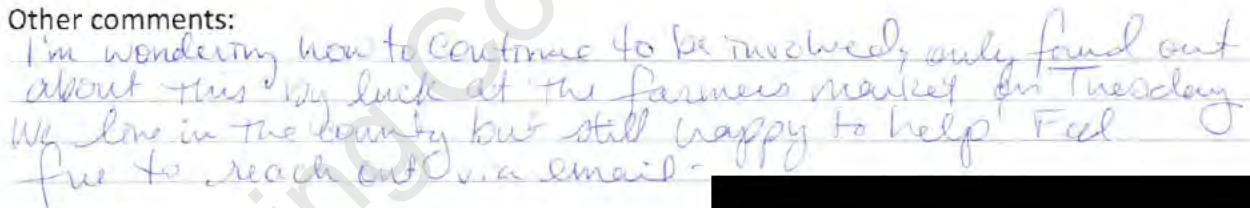 Other comments:
I'm wondering how to continue to be involved, only found out
about this by luck at the farmers market on Tuesday
We live in the county but still happy to help! Feel
free to reach out via email -